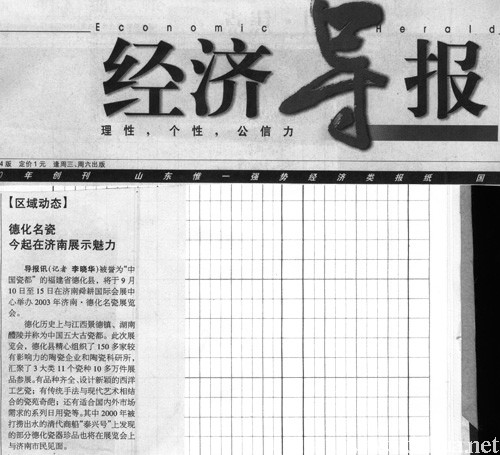 Economic Herald
经济导报
理性，个性，公信力
4版 定价1元 逢周三、周六出版
年创刊 山东惟一强势经济类报纸 国
【区域动态】
德化名瓷
今起在济南展示魅力
导报讯(记者 李晓华)被誉为“中
国瓷都”的福建省德化县，将于9月
10日至15日在济南舜耕国际会展中
心举办2003年济南·德化名瓷展览
会。
德化历史上与江西景德镇、湖南
醴陵并称为中国五大古瓷都。此次展
览会，德化县精心组织了150多家较
有影响力的陶瓷企业和陶瓷科研所，
汇聚了3大类11个瓷种10多万件展
品参展。有品种齐全、设计新颖的西洋
工艺瓷；有传统手法与现代艺术相结
合的瓷苑奇葩；还有适合国内外市场
需求的系列日用瓷等。其中2000年被
打捞出水的清代商船“泰兴号”上发现
的部分德化瓷器珍品也将在展览会上
与济南市民见面。